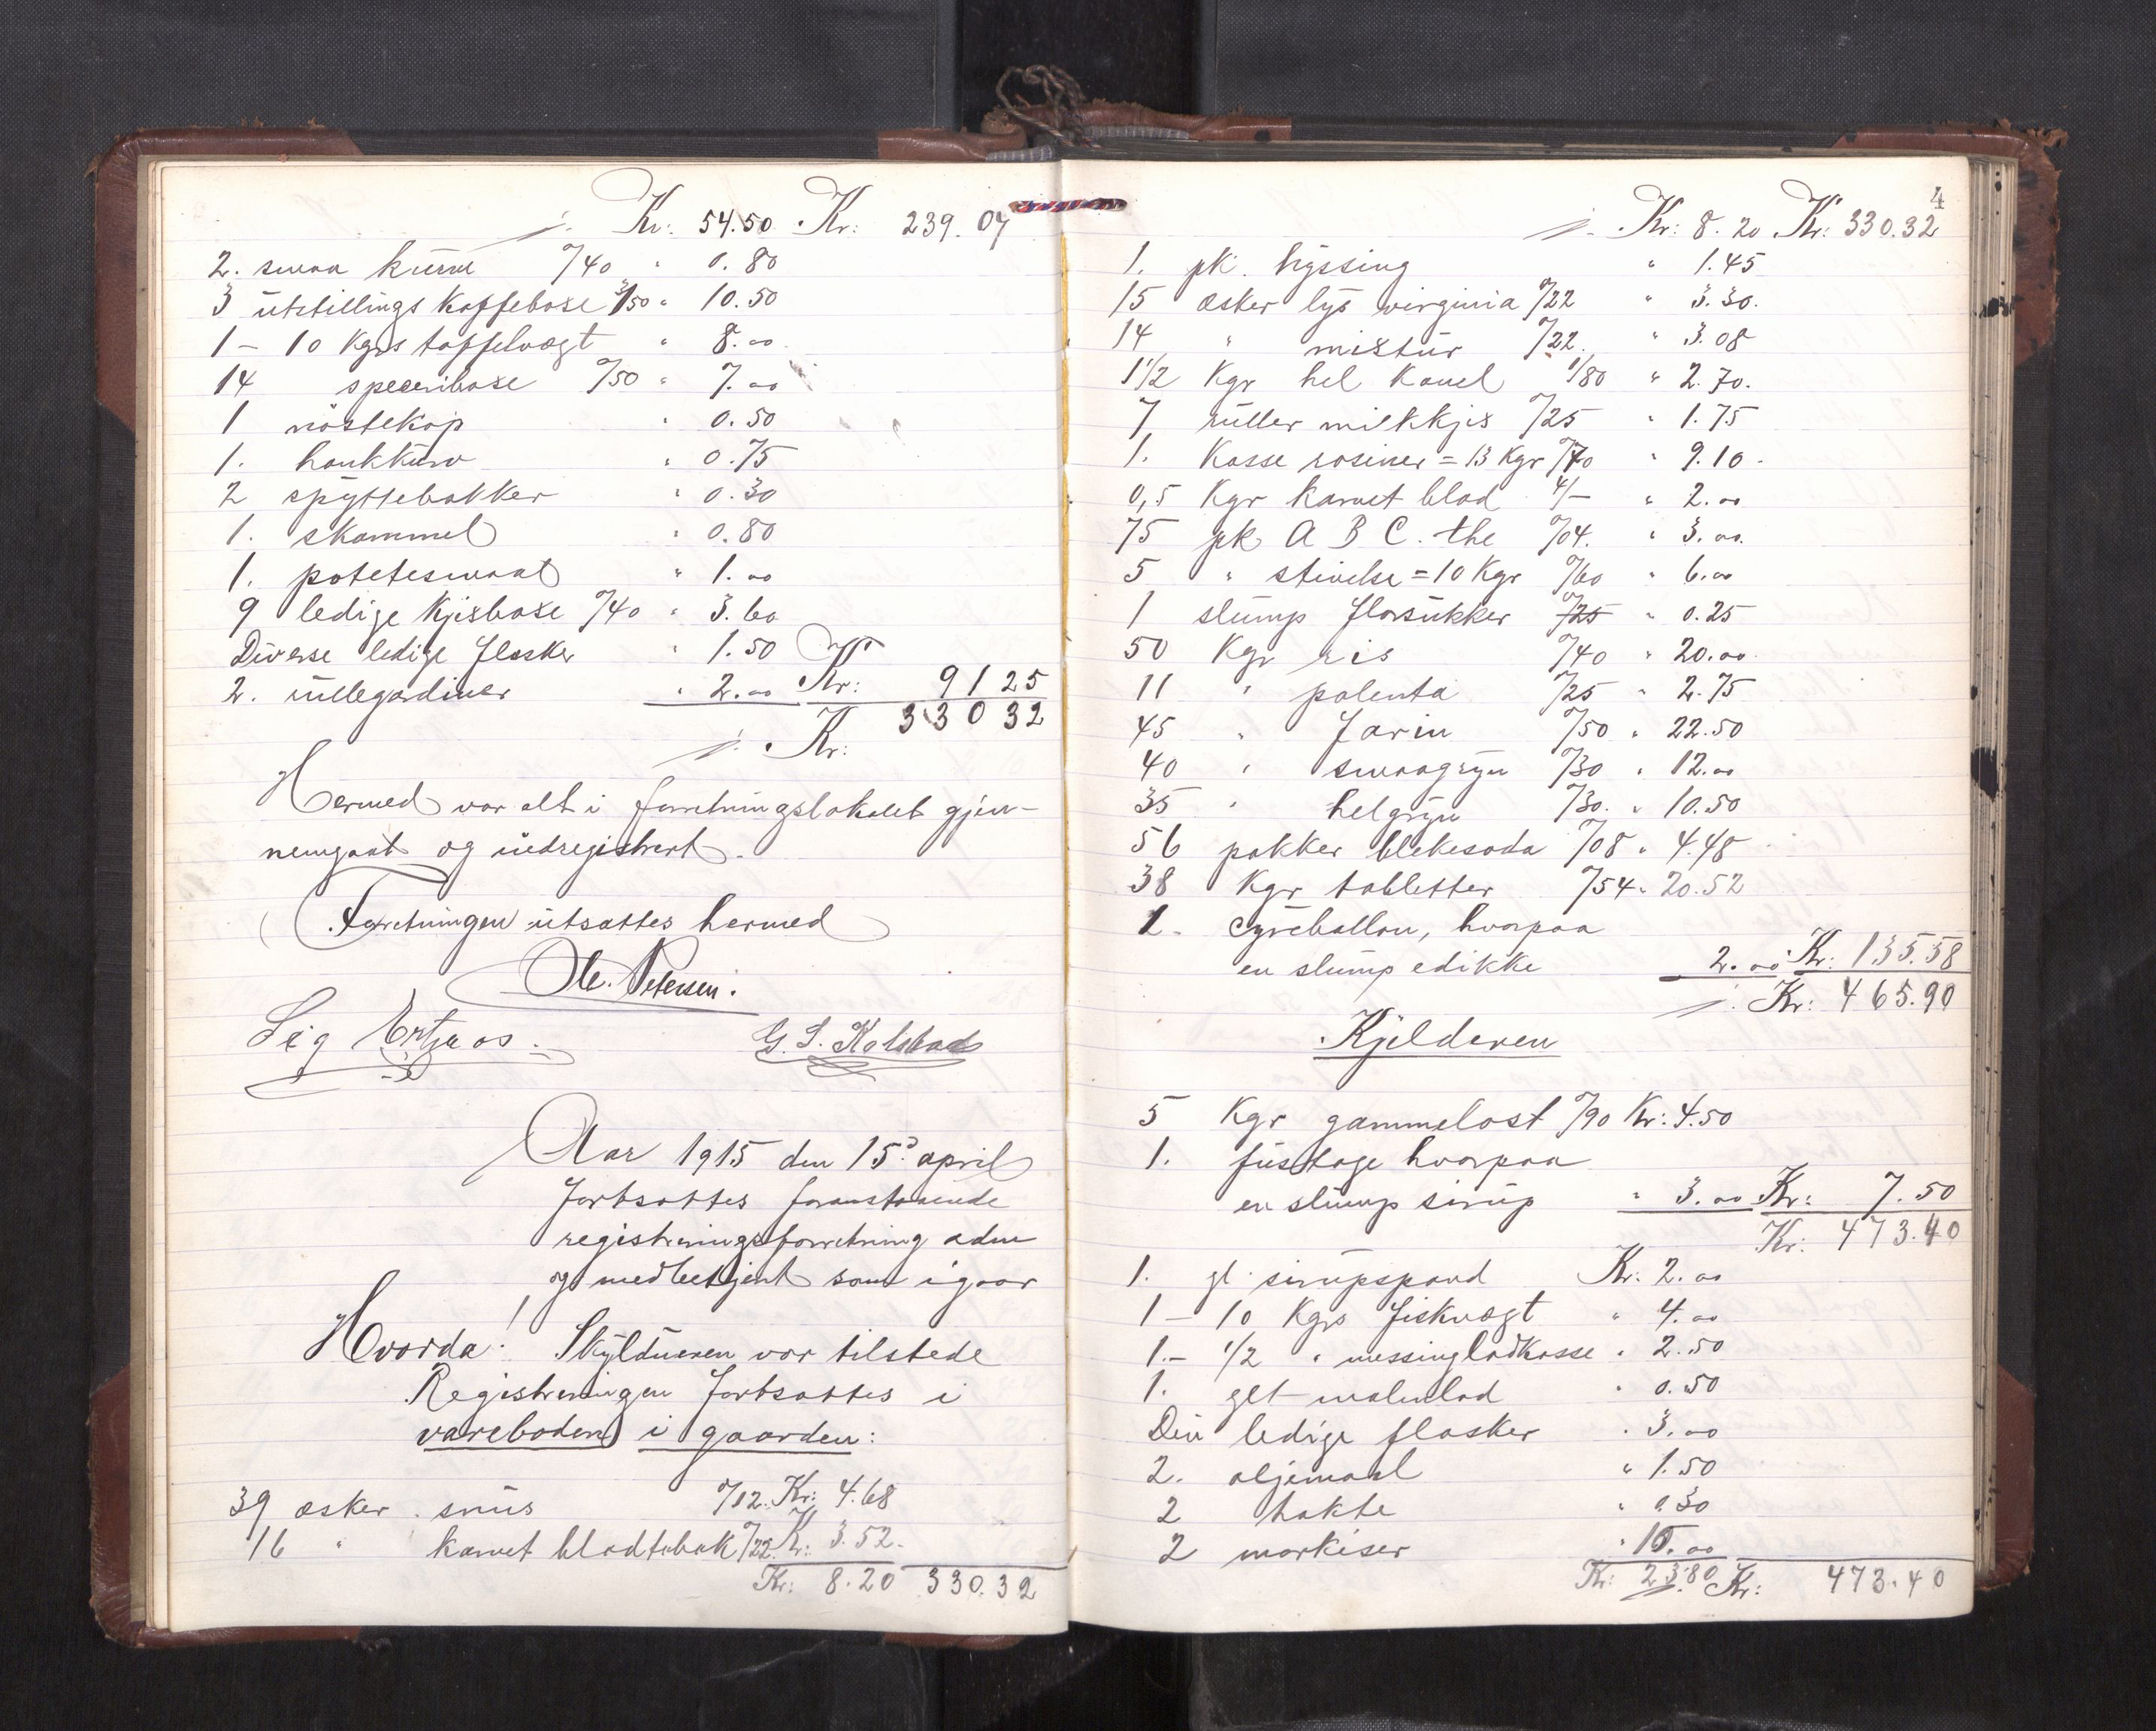 Kr: 54.50 Kr: 239.07
2. smaa kurve %40 " 0.80
3 utstillings kaffebokse 3/50 " 10.50
1 – 10 Kgrs taffelvegt " 8.00
14 speceribokse %50 " 7.00
1 nöstekop " 0.50
1. hankkurv " 0.75
2 spyttebakker " 0.30
1. skammel " 0.80
1. potetesmaal " 1.00
9 ledige kjeksbokse %40 " 3.60
Diverse ledige flasker " 1.50
2. rullegardiner " 2.00 Kr: 91 25
Kr: 330 32
Hermed var alt i forretningslokalet gjen-
nemgaat og indregistrert.
Forretningen utsattes hermed
Ole. Petersen.
Sig
G. S. Kalstad
Aar 1915 den 15d april
fortsattes foranstaaende
registreringsforretning adm
og medbetjent som igaar
Hvorda: Skyldneren var tilstede
Registreringen fortsattes i
vareboden i gaarden:
39 æsker snus %12. Kr: 4.68
16 " karvet bladtobak %22 Kr: 3.52.
Kr: 8.20 330.32
4
Kr: 8.20 Kr: 330.32
1. pk. hyssing " 1.45
15 æsker lys virginia %22 " 3.30.
14 " mikstur %22. " 3.08
1 1/2 Kgr hel kanel 1/80 " 2.70.
7 ruller milkkjis %25 " 1.75
1. kasse rosiner = 13 Kgr %70 " 9.10.
0,5 Kgr karvet blad 4/– " 2.00
75 pk A B C. the %04. " 3.00.
5 " stivelse = 10 Kgr %60 " 6.00
1 slump florsukker %25 " 0.25
50 Kgr ris %40 " 20.00
11 " polenta %25 " 2.75
45 " Farin %50 " 22.50
40 " smaagryn %30 " 12.00
35 " helgryn %30. " 10.50
56 pakker blekesoda %08 " 4.48
38 Kgr tabletter %54 " 20.52
1. Syreballon, hvorpaa
en slump edikke 2.00 Kr: 135.58
Kr: 465.90
Kjelderen
5 Kgr gammelost %90 Kr: 4.50
1. fustage hvorpaa
en slump sirup " 3.00 Kr: 7.50
Kr: 473.40
1. gl. sirupspand Kr: 2.00
1 – 10 Kgrs fiskvegt " 4.00
1. – 1/2 " messinglodkasse " 2.50
1. glt malmlod " 0.50
Div ledige flasker " 3.00
2. oljemaal " 1.50
2 trakte " 0.30
2 markiser " 10.00
Kr: 23.80 Kr: 473.40